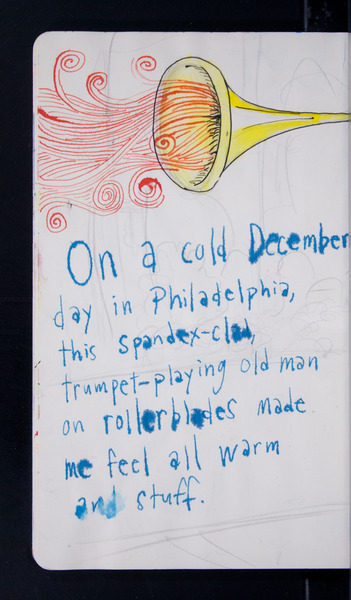 On a cold December
day in Philadelphia,
this spandex-clad,
trumpet-playing old man
on rollerblades made
me feel all warm
and stuff.